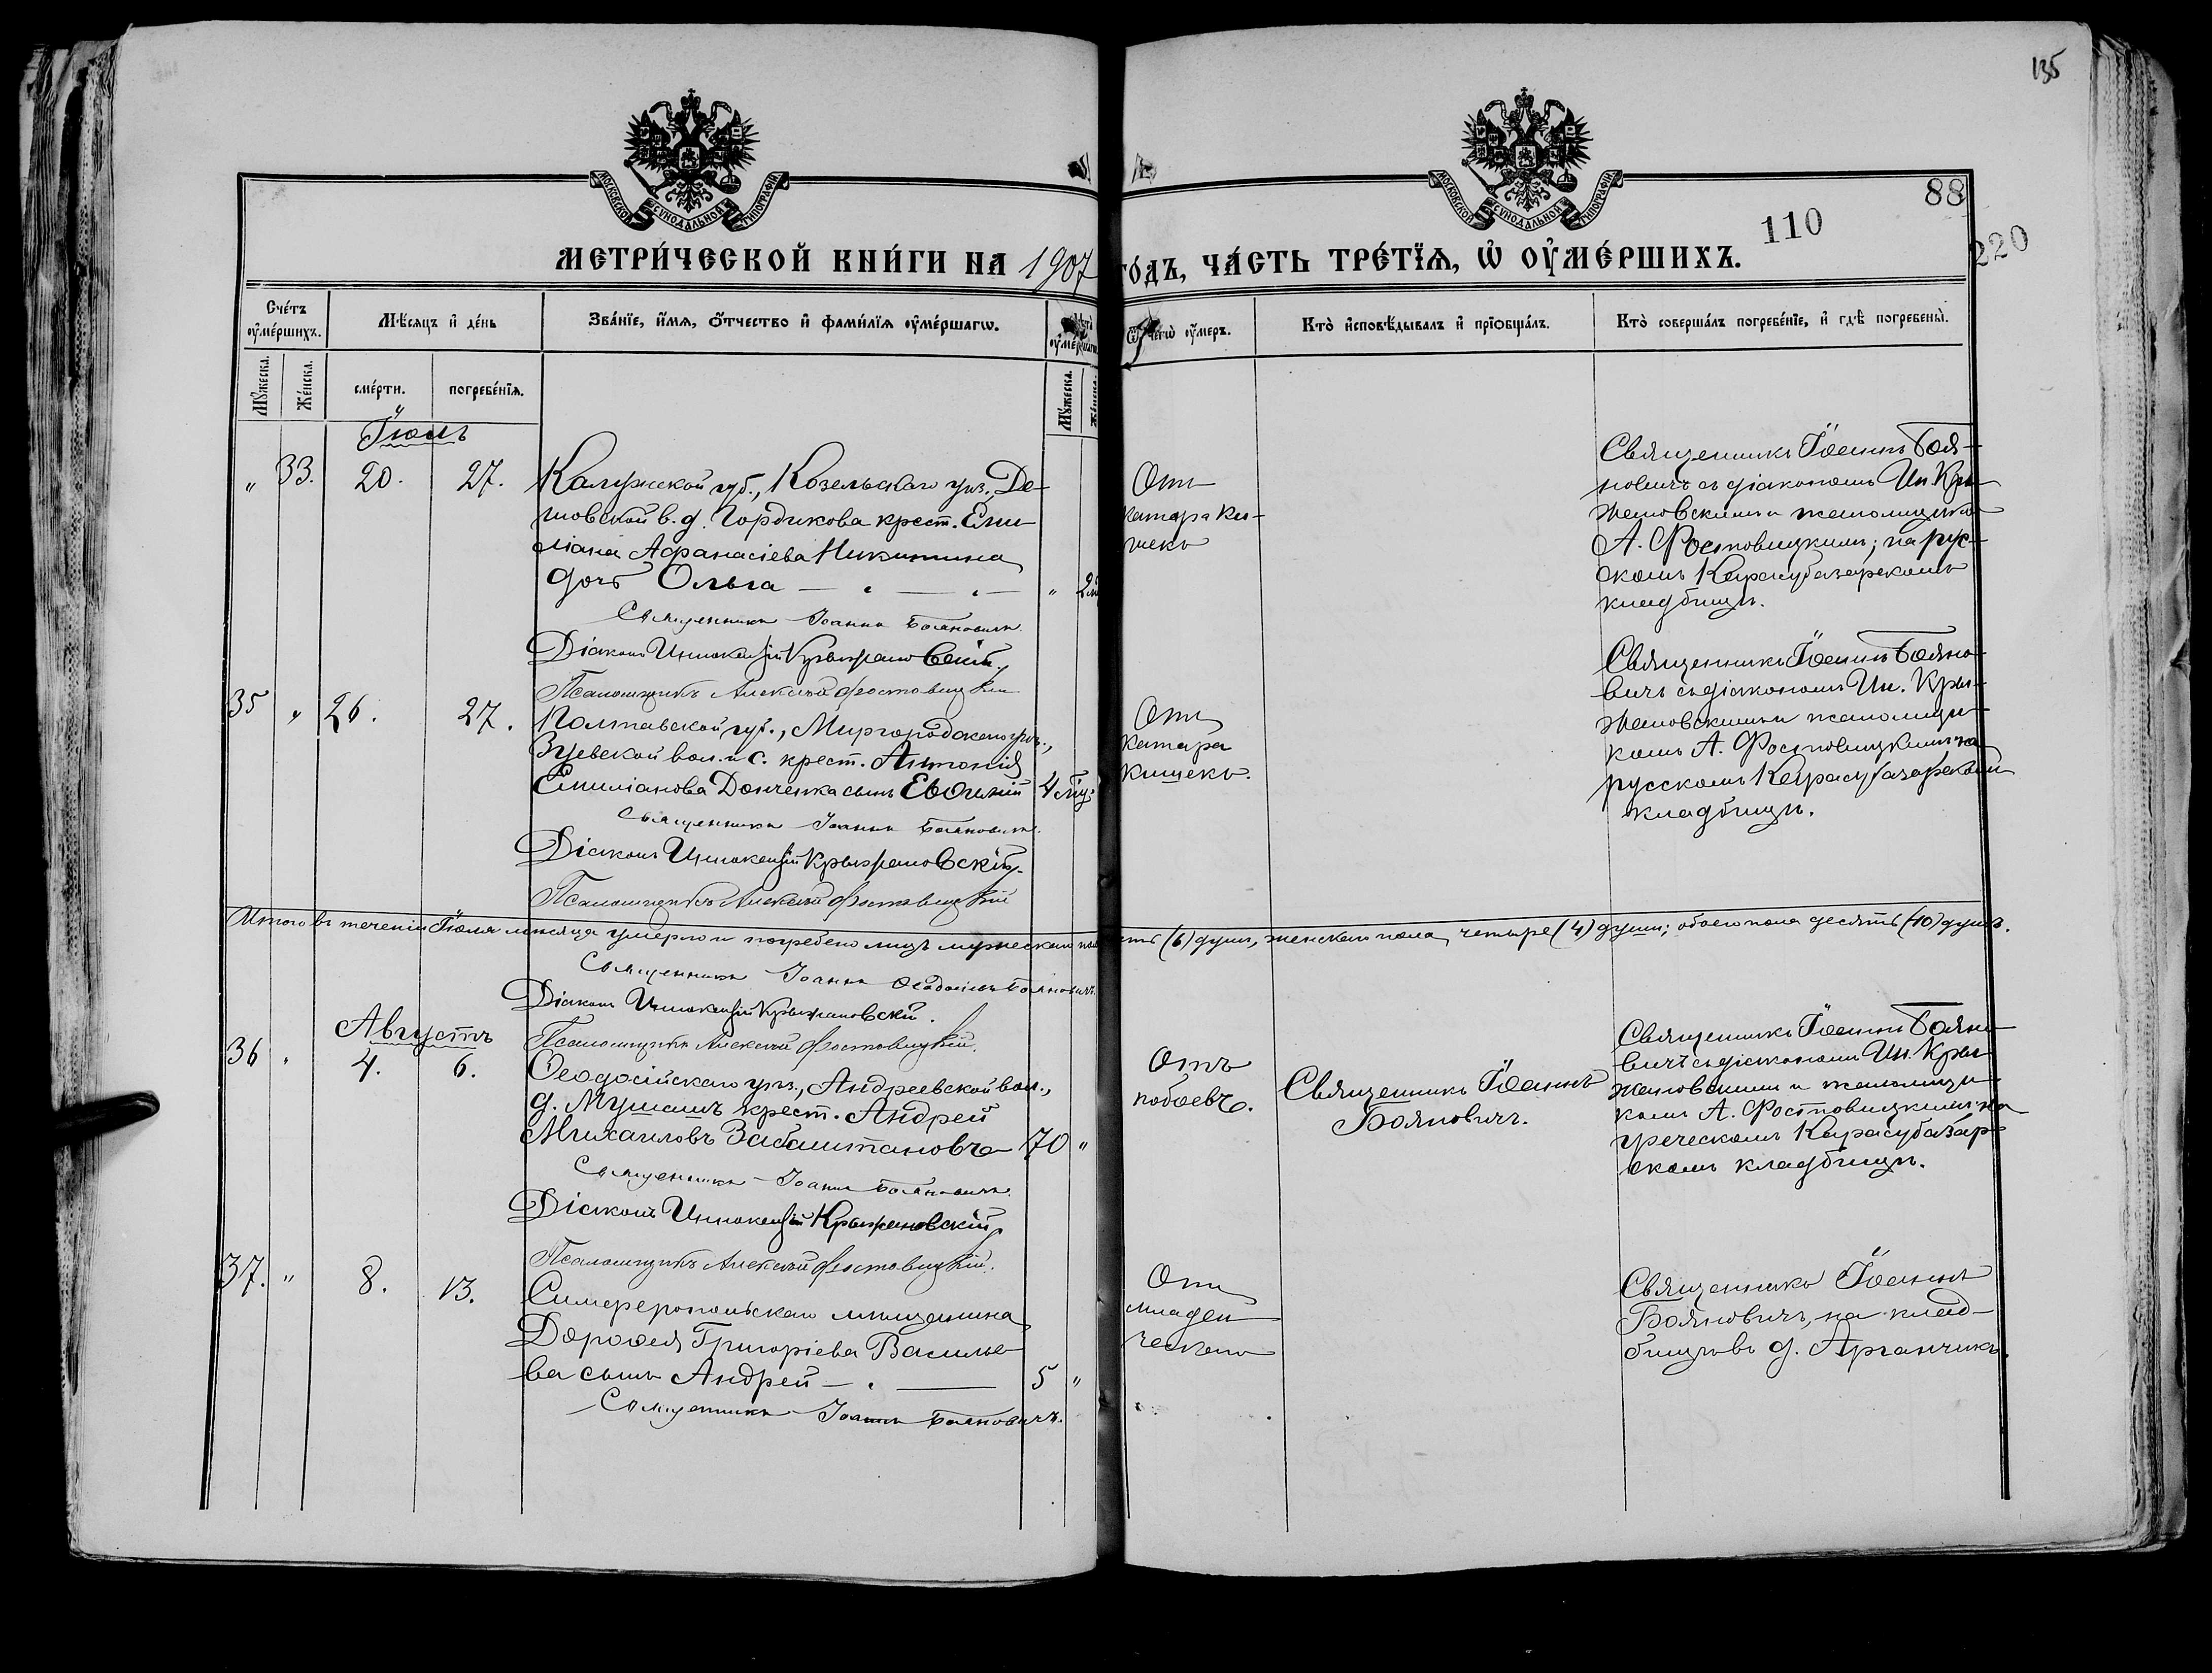 135
МОСКОВСКОЙ СѴНОДАЛЬНОЙ ТИПОГРАФІИ
МОСКОВСКОЙ СѴНОДАЛЬНОЙ ТИПОГРАФІИ
88
110
220
МЕТРИ́ЧЕСКОЙ КНИ́ГИ НА 1907
ГО́ДЪ, ЧА́СТЬ ТРЕ́ТЇѦ, Ѽ ОУ҆МЕ́РШИХЪ.
Сче́тъ оу҆ме́ршихъ.
Мѣ́сѧцъ и҆ де́нь
Зва́нїе, и҆́мѧ, ѻ҆́тчество и҆ фами́лїѧ оу҆ме́ршагѡ.
Ѿ чегѡ̀ оу҆́меръ.
Кто̀ и҆сповѣ́дывалъ и҆ прїѡбща́лъ.
Кто̀ соверша́лъ погребе́нїе, и҆ гдѣ̀ погребены̀.
Мꙋ́жеска.
Же́нска.
сме́рти.
погребе́нїѧ.
Мꙋ́жеска.
Іюль
„ 33. 20. 27.
Калужской губ., Козельскаго уѣз., Де-
шовской в. д. Гордикова крест. Еми
ліана Аѳанасіева Никитина
дочь Ольга
Священникъ Іоаннъ Бояновичъ.
Діаконъ Иннокентій Крыжановскій.
Псаломщикъ Алексѣй Фостовицкій
Отъ
катара ки-
шекъ
Священникъ Іоаннъ Боя-
новичъ съ діакономъ Ин. Кры
жановскимъ и псаломщико
А. Фостовицкимъ; на рус-
скомъ Карасубазарскомъ
кладбищѣ.
35 „ 26. 27.
Полтавской губ., Миргородскаго уѣз.,
Зуевской вол. и с. крест. Антонія
Емиліанова Донченка сынъ Евѳимій
4 мѣс.
Священникъ Іоаннъ Бояновичъ.
Діаконъ Иннокентій Крыжановскій.
Псаломщикъ Алексѣй Фостовицкій
Отъ
катара
кишекъ.
Священникъ Іоаннъ Бояно-
вичъ съ діакономъ Ин. Кры-
жановскимъ и псаломщи-
комъ А. Фостовицкимъ на
русскомъ Карасубазарскомъ
кладбищѣ.
Итого въ теченіи Іюля мѣсяца умерло и погребено лицъ мужескаго пола
(6) душъ, женскаго пола четыре (4) души; обоего пола десять (10) душъ.
Священникъ Іоаннъ Ѳеодосіевъ Бояновичъ.
Діаконъ Иннокентій Крыжановскій.
Псаломщикъ Алексѣй Фостовицкій.
Августъ
36 „ 4. 6.
Ѳеодосійскаго уѣз., Андреевской вол.,
д. Мушашъ крест. Андрей
Михаиловъ Забаштановъ
70 „
Священникъ Іоаннъ Бояновичъ.
Діаконъ Иннокентій Крыжановскій.
Псаломщикъ Алексѣй Фостовицкій.
Отъ
побоевъ.
Священникъ Іоаннъ
Бояновичъ.
Священникъ Іоаннъ Бояно
вичъ съ діакономъ Ин. Кры
жановскимъ и псаломщи
комъ А. Фостовицкимъ на
греческомъ Карасубазар-
скомъ кладбищѣ.
37. „ 8. 13.
Симферопольскаго мѣщанина
Дороѳея Григоріева Василье
ва сынъ Андрей
5 „
Священникъ Іоаннъ Бояновичъ.
Отъ
младен
ческаго
Священникъ Іоаннъ
Бояновичъ, на клад-
бищѣ въ д. Арганчикъ.